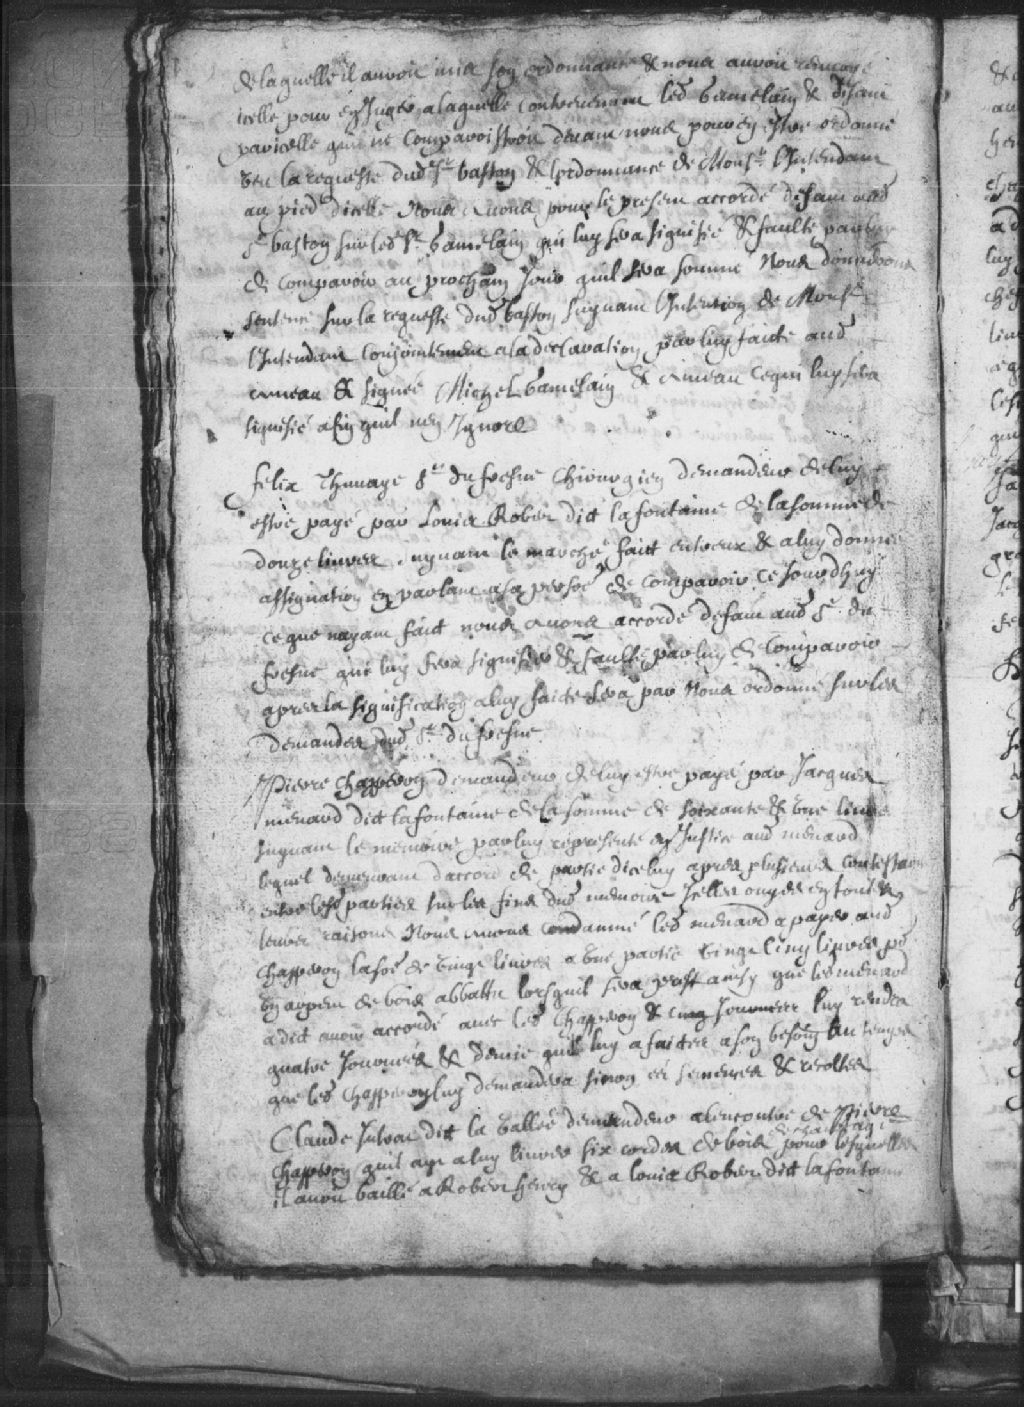 de laquelle il auroit mis son ordonnance & nous auroit renvoyé
icelle pour en Juger a laquelle contrevenant led Gamelain & disant
par icelle quil ne comparoistroit devant nous pour en estre ordonné
Veu la requeste dud Sr baston & lordonnance de Monsr lIntendant
au pied dicelle Nous avons pour le present accordé defaut aud
Sr baston sur led Sr Gamelain qui luy sera signifié & faulte par luy
de comparoir au prochain jour quil sera sommé Nous donnerons
sentence sur la requeste dud baston suyvant lIntention de Monsr
lIntendant conjointement a la declaration par luy faicte aud
cruneau & signée Michel Gamelain & cruneau ce qui luy sera
signifié afin quil nen Ignore
felix Thunaye Sr dufresne Chirurgien demandeur de luy
estre payé par Louis Rober dict lafontaine de la somme de
douze livres suyvant le marché faict entreux & a luy donné
assignation en parlant a sa persoe de comparoir ce jourdhuy
ce que nayant faict nous avons accordé defaut aud Sr du
fresne qui luy sera signifié & faulte par luy de comparoir
apres la signification a luy faicte sera par Nous ordonné sur les
demandes dud Sr dufresne
Pierre Chapperon demandeur de luy estre payé par Jacques
menard dict lafontaine de la somme de soixante & une livres
suyvant le memoire par luy representé en Justice aud menard
lequel demeurant daccord de partie diceluy apres plusieurs contestaons
entre lesd parties sur les fins dud memoire Icelles ouyes en toutes
leurs raisons Nous avons condamné led menard a payer aud
Chapperon la soe de vingt livres a une partie vingt cinq livres po
un arpent de bois abbattu lorsquil sera prest ainsy que led menard
a dict avoir accordé avec led Chapperon & cinq Journees luy rendra
quatre Journees & demie quil luy a faictes a son besoing au temps
que led Chapperon luy demandera sinon es semences & recoltes
Claude Jutrat dict la Vallée demandeur alencontre de Pierre
Chapperon quil aye a luy livrer six cordes de bois de chauffage pour lesquelles
il avoit baillé a Robert henry & a louis Rober dict lafontaine